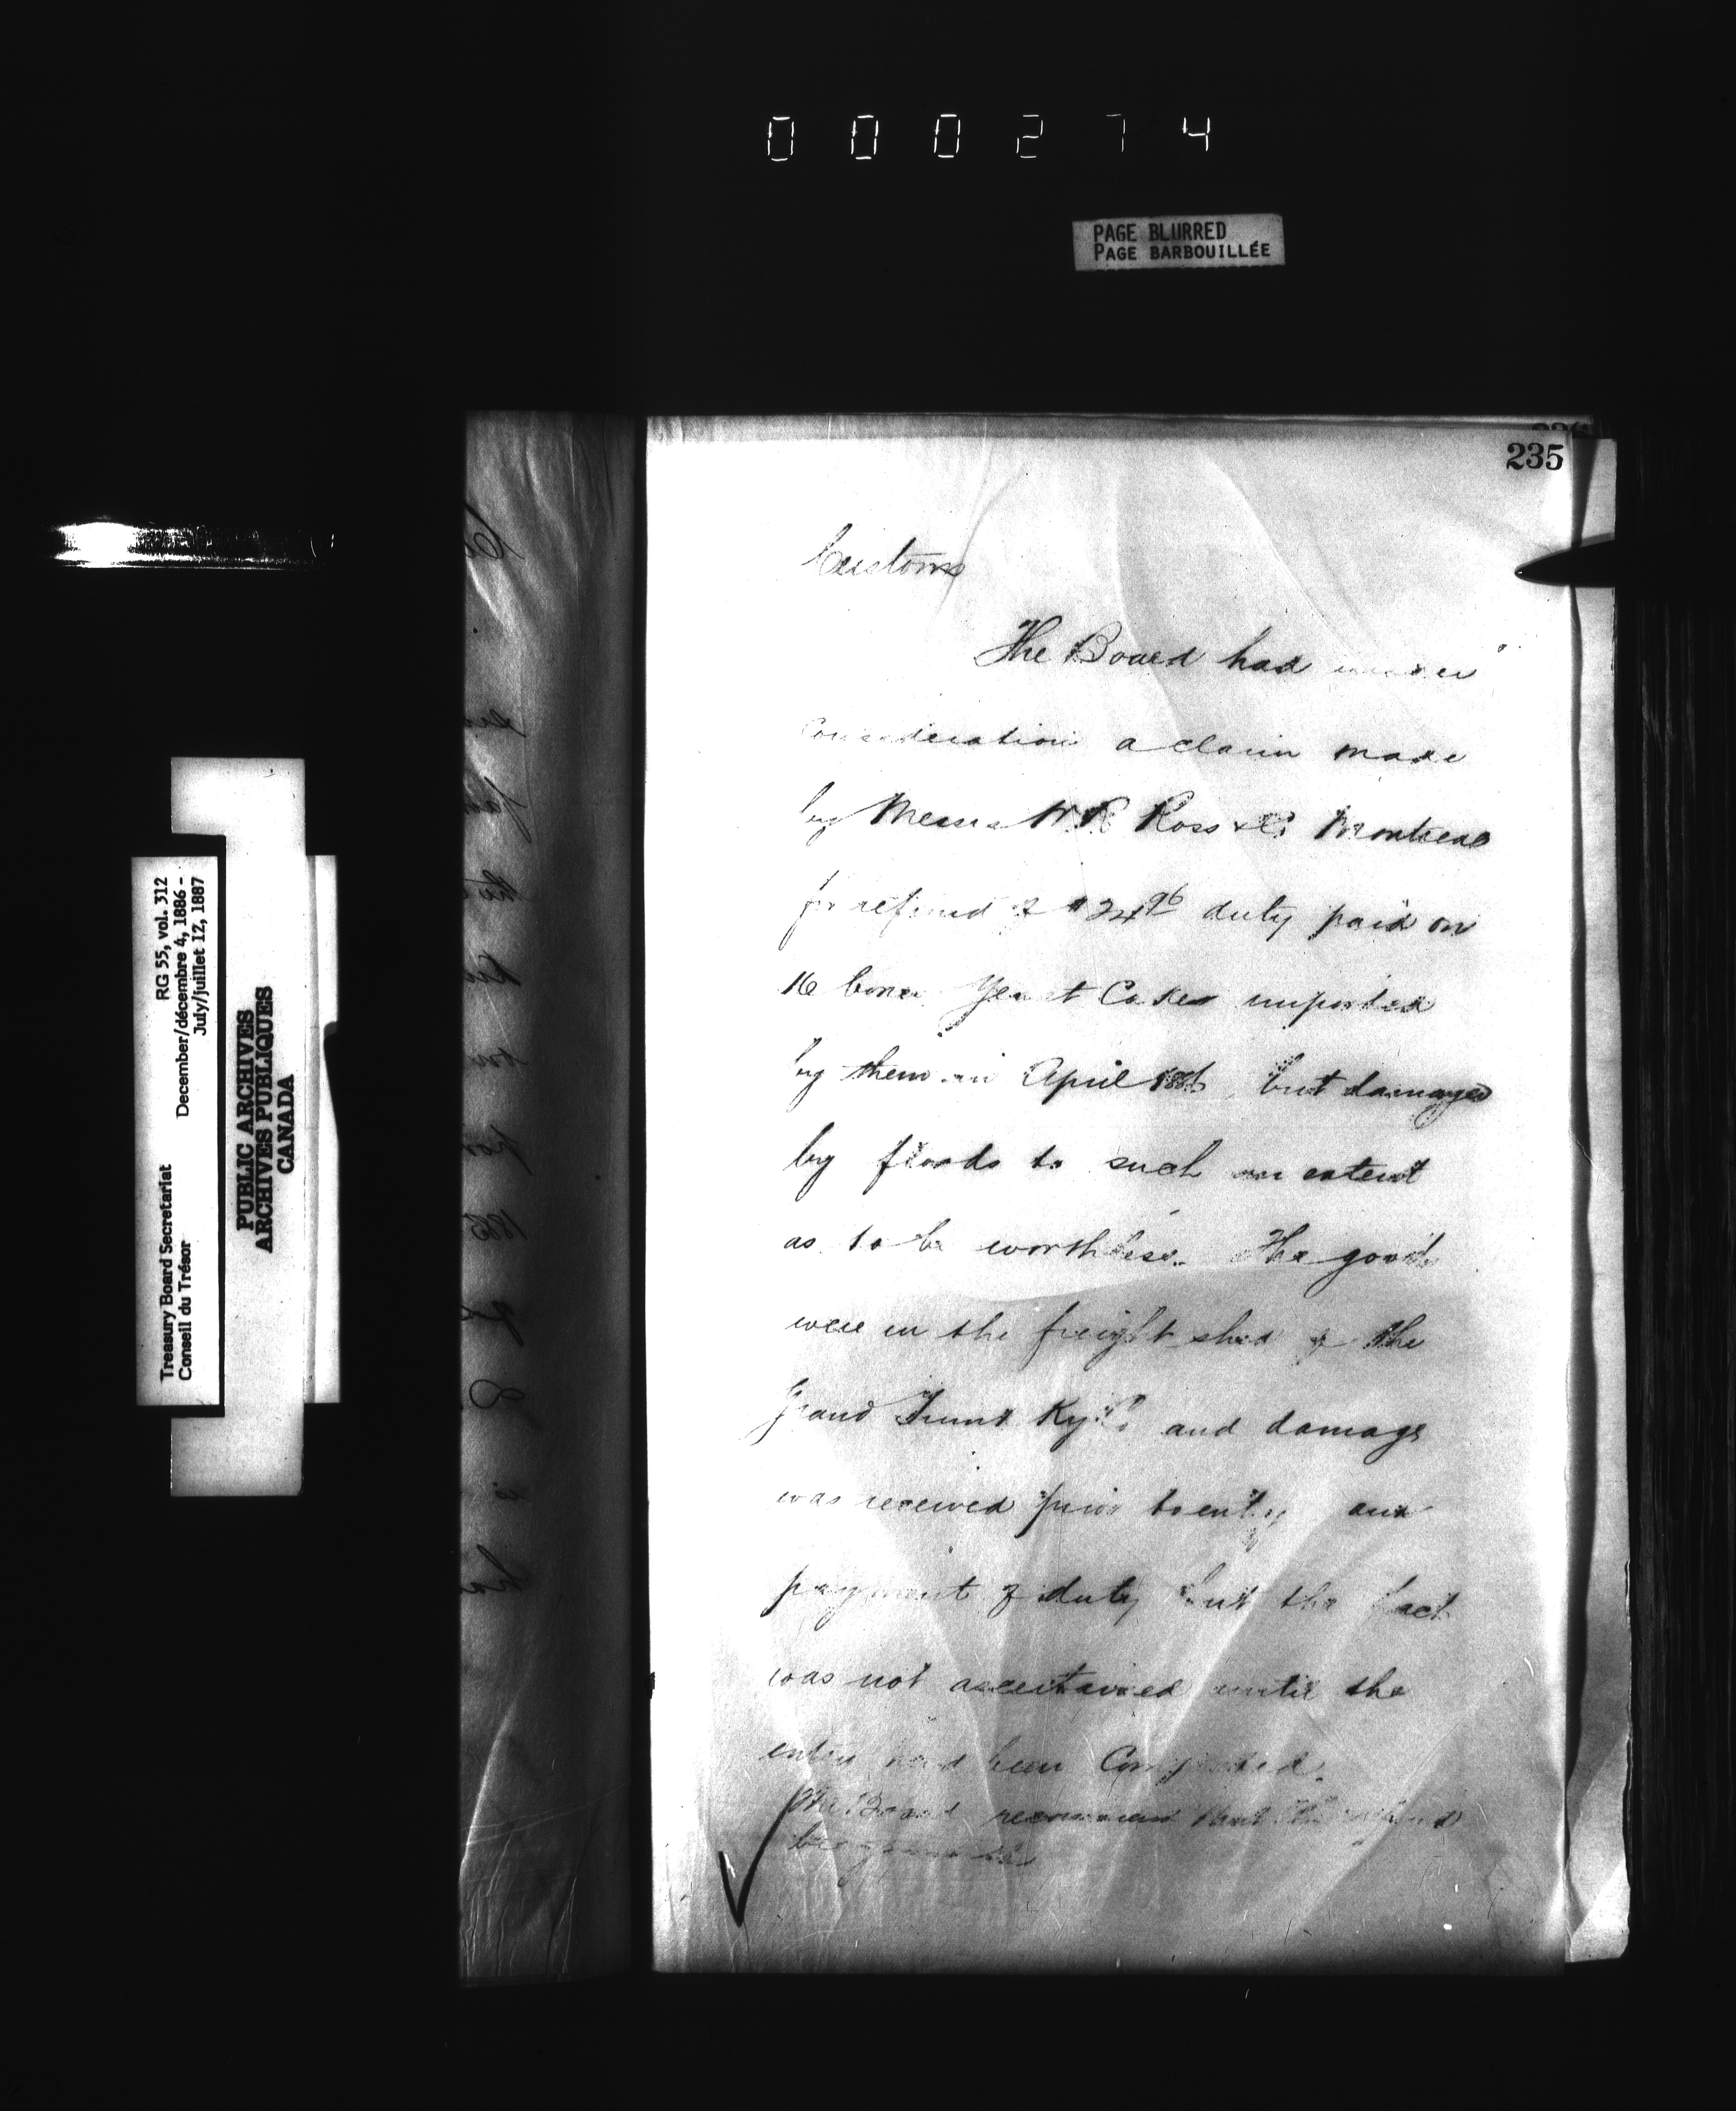 000274
PAGE BLURRED
PAGE BARBOUILLÉE
235
Customs
The Board had under
consideration a claim made
by Messrs W.R. Ross & Co Montreal
for refund of $24.96 duty paid on
16 boxes Yeast Cakes imported
by them in April 1886, but damaged
by floods to such an extent
as to be worthless. The goods
were in the freight shed of the
Grand Trunk Ry Co and damage
was received prior to entry and
payment of duty but the fact
was not ascertained until the
entry had been Completed.
The Board recommend that the refund
be
Treasury Board Secretariat RG 55, vol. 312
Conseil du Trésor December/décembre 4, 1886 -
July/juillet 12, 1887
PUBLIC ARCHIVES
ARCHIVES PUBLIQUES
CANADA